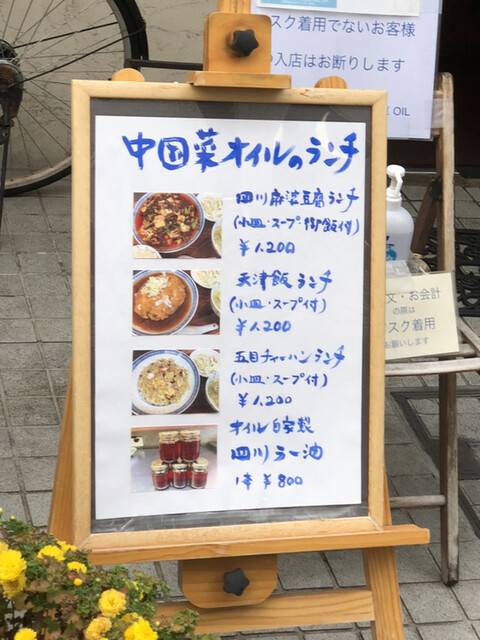 スク着用でないお客様
の入店はお断りします
OIL
中国菜オイルのランチ
四川麻婆豆腐ランチ
(小皿・スープ・御飯付)
¥1,200
天津飯ランチ
(小皿・スープ付)
¥1,200
五目チャーハンランチ
(小皿・スープ付)
¥1,200
オイル自家製
四川ラー油
1本 ¥800
文・お会計
の際は
スク着用
お願いします